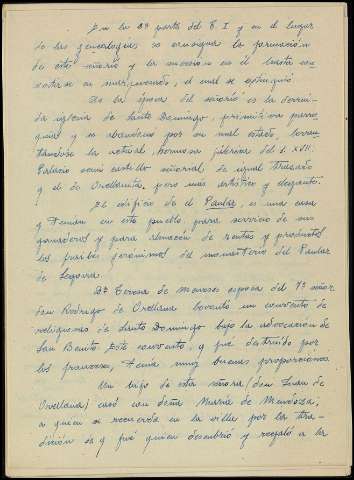 En la 2ª parte del T. I y en el lugar
de las genealogías, se consigna la formación
de este señorío y la sucesión en él hasta con-
vertirse en marquesado, el cual se extinguió.
De la época del señorío es la derrui-
da iglesia de Santo Domingo, primitiva parro-
quia y se abandonó por su mal estado, levan-
tándose la actual, hermosa fábrica del s. XVII.
Palacio semi castillo señorial de igual trazado
y el de Orellanita, pero más artístico y elegante.
El edificio de el Paular, es una casa
q tenían en este pueblo, para servicio de sus
ganaderos y para almacén de rentas y productos
los frailes jerónimos del monasterio del Paular
de Segovia.
Dª Teresa de Meneses esposa del 7º señor
don Rodrigo de Orellana levantó un convento de
religiosas de Santo Domingo bajo la advocación de
San Benito. Este convento, q fue destruido por
los franceses, tenía muy buenas proporciones
Un hijo de esta señora (don Juan de
Orellana) casó con doña María de Mendoza,
a quien se recuerda en la villa por la tra-
dición de q fué quien descubrió y regaló a la